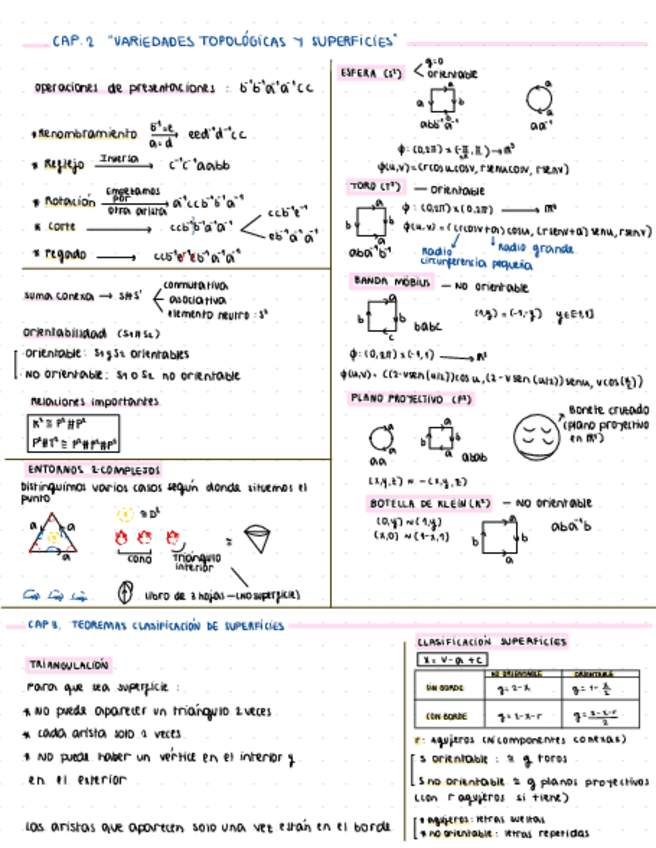 CAP. 2 "VARIEDADES TOPOLÓGICAS Y SUPERFICIES"
operaciones de presentaciones : b⁻¹b⁻¹a⁻¹a⁻¹cc
* Renombramiento b⁻¹=e a=d eed⁻¹d⁻¹cc
* Reflejo Inversa c⁻¹c⁻¹aabb
* Rotación Empezamos por otra arista a⁻¹ccb⁻¹b⁻¹a⁻¹
* corte ccb⁻¹b⁻¹a⁻¹a⁻¹ ccb⁻¹e⁻¹
eb⁻¹a⁻¹a⁻¹
* Pegado ccb⁻¹e⁻¹eb⁻¹a⁻¹a⁻¹
suma conexa → S#S' conmutativa
asociativa
elemento neutro : S²
orientabilidad (S1#S2)
· orientable : S1 y S2 orientables
· NO orientable : S1 o S2 no orientable
Relaciones importantes
K² ≅ P²#P²
P²#T² ≅ P²#P²#P²
ENTORNOS 2-COMPLEJOS
Distinguimos varios casos según donde situemos el
punto
≅ D²
a a
a
cono Triángulo
interior
≅
libro de 3 hojas — (no superficie)
ESFERA (S²) g=0
orientable
a b
abb⁻¹a⁻¹
a a
aa⁻¹
ϕ(u,v)=(rcosucosv, rsenucosv, rsenv)
TORO (T²) — orientable
a
b b
a
aba⁻¹b⁻¹
ϕ : (0,2π)×(0,2π) → R³
ϕ(u,v) = ((rcosv+a) cosu, (rsenv+a) senu, rsenv)
radio
circunferencia pequeña
Radio grande
BANDA MÖBIUS — NO orientable
a
b b
c
babc
ϕ : (0,2π)×(-1,1) → R³
ϕ(u,v) = ((2-vsen(u/2))cos u, (2-vsen(u/2)) senu, vcos(u/2))
PLANO PROYECTIVO (P²)
aa
abab
Bonete cruzado
(plano proyectivo
en R³)
(x,y,z) ~ -(x,y,z)
BOTELLA DE KLEIN (K²) — NO orientable
(0,y) ~ (1,y)
(x,0) ~ (1-x,1)
a
b b
a
aba⁻¹b
CAP 3. TEOREMAS CLASIFICACIÓN DE SUPERFICIES
TRIANGULACIÓN
Para que sea superficie :
* NO puede aparecer un triángulo 2 veces
* cada arista solo 2 veces
* NO puede haber un vértice en el interior y
en el exterior
Las aristas que aparecen solo una vez están en el borde
CLASIFICACIÓN SUPERFICIES
χ = v - a + c
NO ORIENTABLE ORIENTABLE
SIN BORDE g = 2-χ g = 1-χ/2
CON BORDE g = 2-χ-r g = 2-χ-r/2
r : agujeros (nº componentes conexas)
S orientable : ≅ g toros
S no orientable ≅ g planos proyectivos
(con r agujeros si tiene)
* agujeros : letras sueltas
* no orientable : letras repetidas